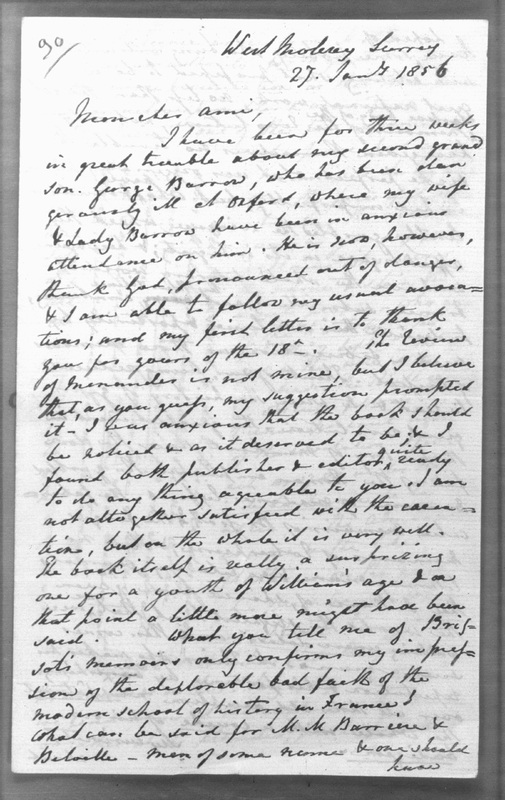 90/
West Molesey Surrey
27. Jany 1856
Mon cher ami,
I have been for three weeks
in great trouble about my second grand
son. George Barrow, who has been dan
gerously ill at Oxford, where my wife
& Lady Barrow have been in anxious
attendance on him. He is now, however,
thank God, pronounced out of danger,
& I am able to follow my usual avoca=
tions; and my first letter is to thank
you for yours of the 18th. The Review
of Menander is not mine, but I believe
that, as you guess, my suggestion prompted
it - I was anxious that the book should
be noticed & as it deserved to be; & I
found both publisher & editor, quite ready
to do any thing agreeable to you. I am
not altogether satisfied with the execu=
tion, but on the whole it is very well.
The book itself is really a surprizing
one for a youth of William's age & on
that point a little more might have been
said. What you tell me of Bris=
sot's memoirs only confirms my impres=
sion of the deplorable bad faith of the
modern school of history in France!
What can be said for M. M Barriere &
Belville - men of some name & one should
know